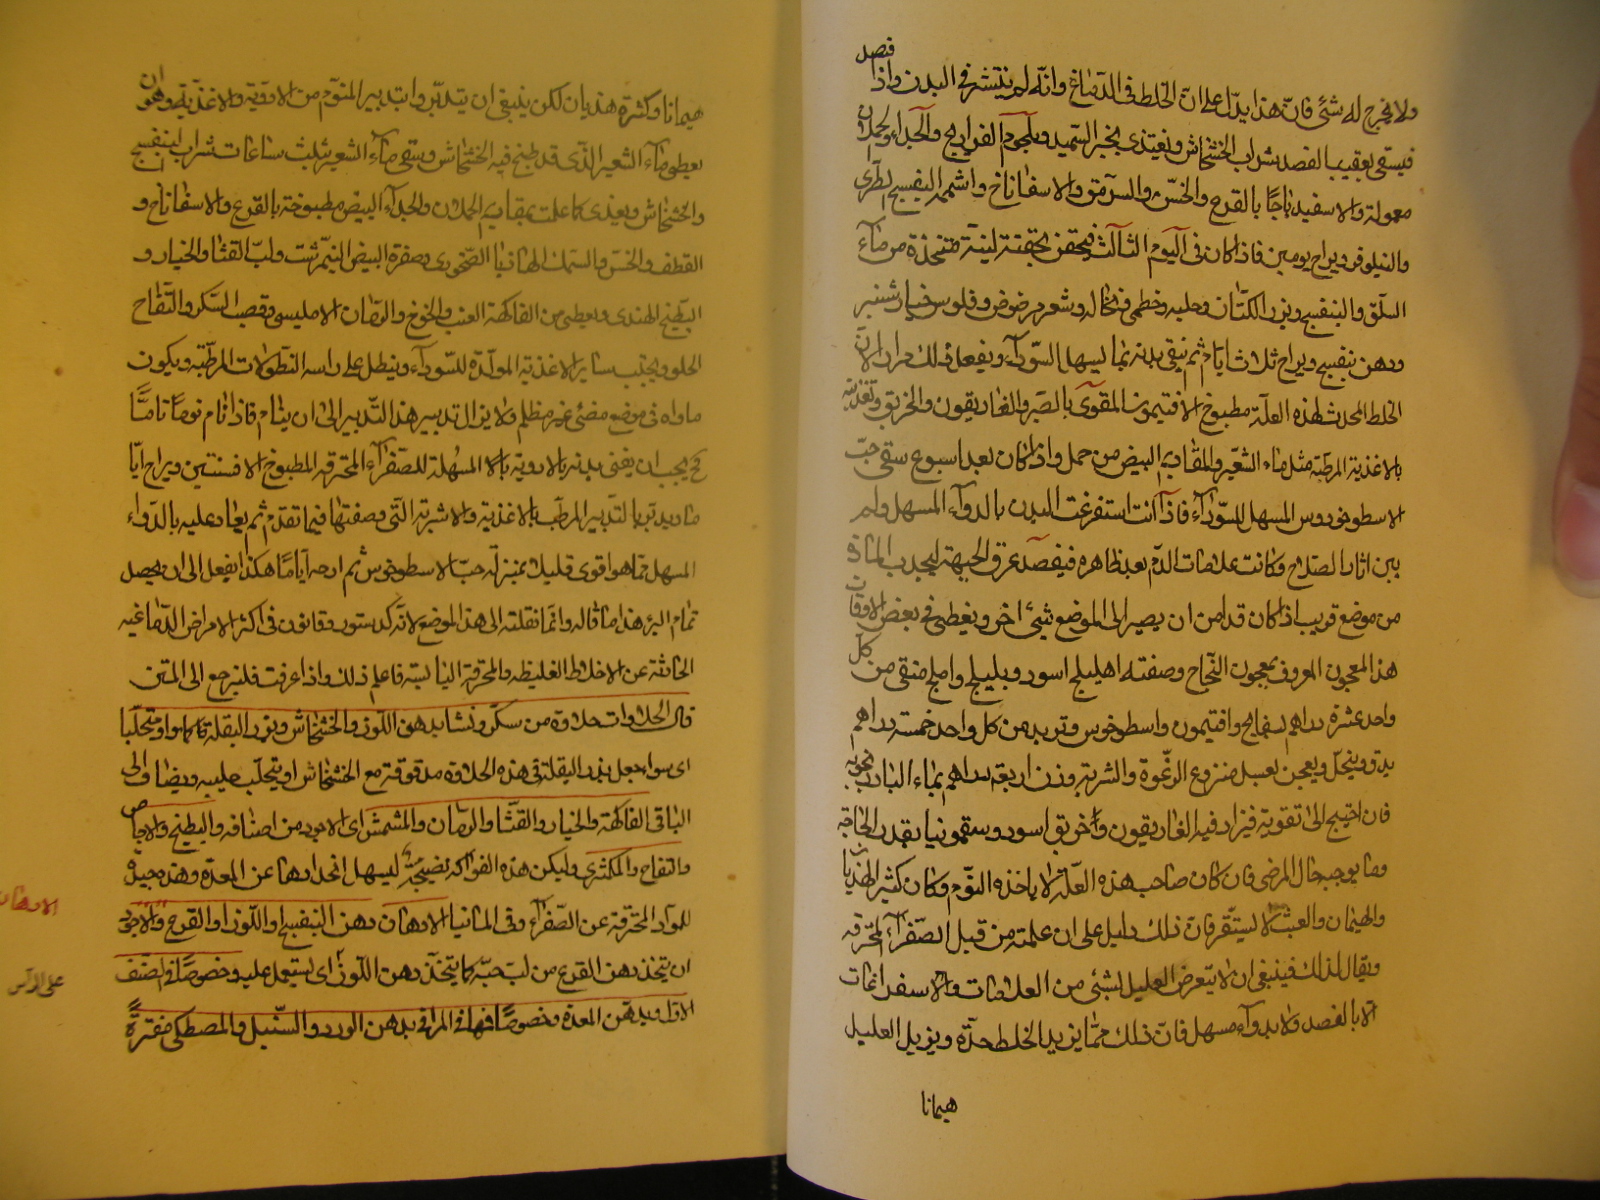 ولا يخرج له شئ فان هذا يدل على ان الخلط فى الدماغ وانه لم ينتشر فى البدن واذا فصد
فيسقى بعقيب الفصد شراب الخشخاش ويغتذى بخبز السميد وبلحوم الفراريج والجداء والحملان
معمولة والاسفيدباجا بالقرع والخس والسرمق والاسفاناخ واشمه البنفسج الطرى
والنيلوفر ويراح يومين فاذا كان فى اليوم الثالث فيحقن بحقنة لينة متخذة من ماء
السلق والبنفسج وبزر الكتان وحلبه وخطمى ونخاله وشعير مرضوض وفلوس خيارشنبر
ودهن بنفسج ويراح ثلاث ايام ثم ينقى بدنه بما يسهل السوداء ويفعل ذلك مرارا لان
الخلط المحدث لهذه العلة مطبوخ الافتيمون المقوى بالصبر والغاريقون والخربق وتغذيته
بالاغذية المرطبة مثل ماء الشعير والمقاديم البيض من حمل واذا كان بعد اسبوع سقى حب
الاسطوخودوس المسهل للسوداء فاذا كنت استفرغت البدن بالدواء المسهل ولم
يبن اثار الصلاح وكانت علامات الدم بعد ظاهره فيفصد عرق الجبهة ليجذب المادة
من موضع قريب اذا كان قد امن ان يصير الى الموضع شئ اخر ويعطى فى بعض الاوقات
هذا المعجون المعروف بمعجون النجاح وصفته اهليلج اسود وبليلج واملج منقى من كل
واحد عشرة دراهم بسفايج وافتيمون واسطوخوس وتربد من كل واحد خمسة دراهم
يدق وينخل ويعجن بعسل منزوع الرغوة والشربة وزن اربعة دراهم بماء الباذرنجويه
فان احتيج الى تقويته فيزاد فيه الغاريقون وخربق اسود وسقمونيا بقدر الحاجة
وما يوجبه حال المرضى فان كان صاحب هذه العلة لا ياخذه النوم وكان كثير الهذيان
والهيمان والعبث لا يستقر فان ذلك دليل على ان علته من قبل الصفراء المحترقه
ويقال لذلك فينبغى ان لا يتعرض العليل لشئ من العلامات والاستفراغات
الا بالفصد ولا بدواء مسهل فان ذلك مما يزيد الخلط حدة ويزيد العليل
هيمانا
هيمانا وكثرة هذيان لكن ينبغى ان يتدبروا بتدبير المنوم من الادوية والاغذية وهو ان
يعطو ماء الشعير الذى قد طبخ فيه الخشخاش ويسقى ماء الشعير بثلث ساعات شراب البنفسج
والخشخاش ويغذى كما علمت بمقاديم الحملان والجداء البيض مطبوخة بالقرع والاسفاناخ و
القطف والخس والسمك الهازبا الصخورى وصفرة البيض النيمرشت ولب القثا والخيار و
البطيخ الهندى ويعطى من الفاكهة العنب والخوخ والرمان الامليسى وقصب السكر والتفاح
الحلو ويجتنب سائر الاغذية المولدة للسوداء وينطل على راسه النطولات المرطبة ويكون
ماواه فى موضع مضئ غير مظلم ولا يزال تدبيره هذا التدبير الى ان ينام فاذا نام نوما تاما
يجب ان ينقى بدنه بالادوية بالا المسهلة للصفراء المحترقه المطبوخ الافسنتين ويراح اياما
ما ويدبر بالتدبير المرطب بالاغذية والاشربة التى وصفتها فيما تقدم ثم يعاد عليه بالدواء
المسهل بما هو اقوى قليلا بمنزلة حب الاسطوخوس ثم ارحه اياما هكذا يفعل الى ان يحصل
تمام البرء هذا ما قاله وانما نقلته الى هذا الموضع لانه كدستور وقانون فى اكثر الامراض الدماغيه
الحادثة عن الاخلاط الغليظه والمحرقة اليابسة فاعلم ذلك واذا عرفت فلنرجع الى المتن
قال الحلاوات حلاوة من سكر ونشا بدهن اللوز والخشخاش وبزر البقلة كما هو او متحلبا
اى سواء جعل بزر البقلة فى هذه الحلاوة مدقوقة مع الخشخاش او يتحلب حليبه ويضاف الى
الباقى الفاكهة والخيار والقثا والرمان والمشمش اى الاجود من اصنافه والبطيخ والاجاص
والتفاح والكمثرى وليكن هذه الفواكه نضيجة ليسهل انحدارها عن المعدة وهذه جيدة
للمواد المحترقة عن الصفراء وفى المانيا الادهان دهن البنفسج او اللوز او القرع والاجود
ان يتخذ دهن القرع من لب حبه كما يتخذ دهن اللوز اى يستعمل عليه وخصوصا فى الصنف
الاول ويدهن المعدة وخصوصا فيها فى المراقى بدهن الورد والسنبل والمصطكى مفترة
الادهان
على الراس